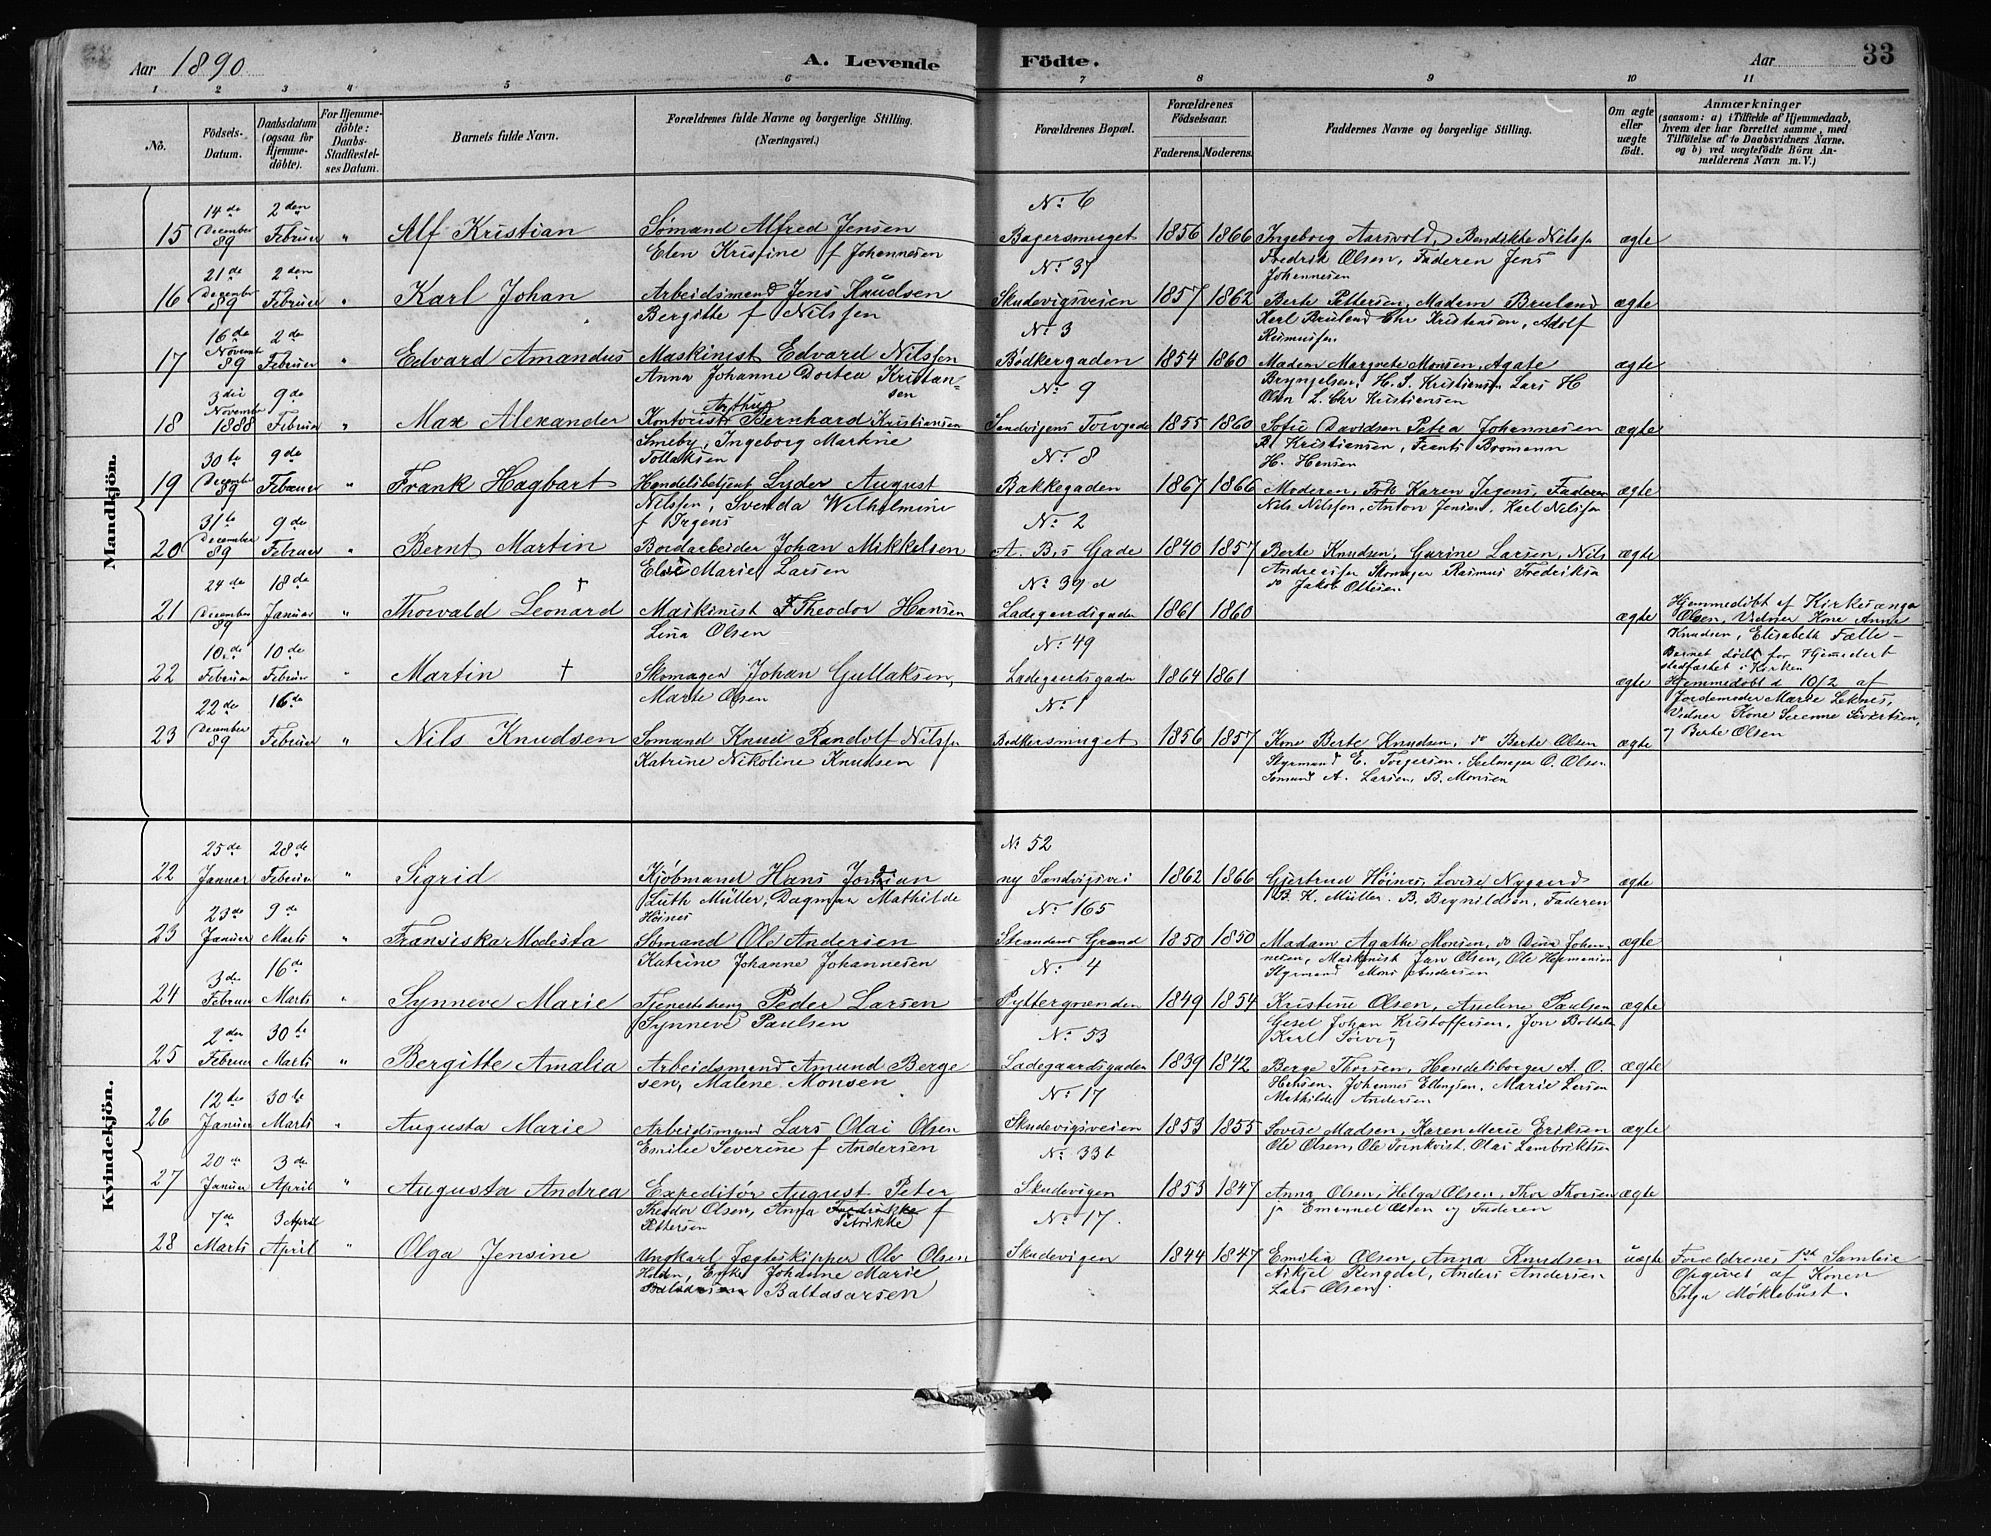 Aar 1890
A. Levende Födte.
Aar
33
1 2 3 4 5 6 7 8 9 10 11
No.
Födsels-Datum.
Daabsdatum (ogsaa for Hjemmedöbte).
For Hjemmedöbte: Daabs-Stadfæstelses Datum.
Barnets fulde Navn.
Forældrenes fulde Navne og borgerlige Stilling. (Næringsvei.)
Forældrenes Bopæl.
Forældrenes Födselsaar.
Faderens. Moderens.
Faddernes Navne og borgerlige Stilling.
Om ægte eller uægte født.
Anmærkninger
(saasom: a) i Tilfælde af Hjemmedaab, hvem der har forrettet samme, med Tilføielse af to Daabsvidners Navne. og b) ved uægtefödte Börn Anmelderens Navn m. V.)
Mandkjön.
15 14de December 89 2den Februar " Alf Kristian Sømand Alfred Jensen No 6 Bagersmuget 1856 1866 Ingeborg Aarsvold, Bendikte Nilss. ægte
Elen Kristine f Johannesen Fredrik Olsen, Faderen Jens
Johannesen
16 21de December 89 2den Februar " Karl Johan Arbeidsmand Jens Knudsen No 37 Skudevigsveien 1857 1862 Berte Pettersen, Madam Bruland ægte
Bergitte f Nilssen Karl Bruland Chr Kristensen, Adolf
Rasmussen
17 16de Novemb 89 2de Februar " Edvard Amandus Maskinist Edvard Nilssen No 3 Bødkergaden 1854 1860 Madam Margrete Monsen, Agate ægte
Anna Johanne Dortea Kristansen Bryngelsen, H. S. Kristiansen Lars H
Olsen L. Chr Kristiansen
18 3die November 1888 9de Februar " Max Alexander Kontorist Arthur Bernhard Kristiansen No 9 Sandvigens Torvgade 1855 1860 Sofie Davidsen Petra Johannesen ægte
Smeby, Ingeborg Martine Kristiansen, Frants Bromann
Tollaksen H. Hansen
19 30te December 89 9de Februar " Frank Hagbart Handelsbetjent Lyder August No 8 Bakkegaden 1867 1866 Moderen, Frk Karen Irgens, Faderen ægte
Nilssen, Svenda Wilhelmine Nils Nilssen, Anton Jensen. Karl Nilssen
f Irgens
20 31te December 89 9de Februar " Bernt Martin Bordarbeider Johan Mikkelsen No 2 A. B,s Gade 1840 1857 Berte Knudsen, Gurine Larsen, Nils ægte
Marie Larsen Skomager Rasmus Fredriksen
do Jakob Ottesen
21 24de December 89 18de Januar " Thorvald Leonard † Maskinist Theodor Hansen No 39d Ladegaardsgaden 1861 1860 ægte Hjemmedøbt af Kirkesanger
Lina Olsen Olsen, Vidner Kone Anna
Knudsen, Elisabeth Fælle -
Barnet døde før
stadfæstet i Kirken
22 10de Februar 10de Februar " Martin † Skomager Johan Gullaksen, No 49 Ladegaardsgaden 1864 1861 ægte Hjemmedøbt d 10/2 af
Marte Olsen Jordemoder Marte Leknes,
Vidner Kone Serenne Sivertsen,
Berte Olsen
23 22de December 89 16de Februar " Nils Knudsen Sømand Knud Randolf Nilssen No 1 Bødkersmuget 1856 1857 Kone Berte Knudsen, do Berte Olsen ægte
Katrine Nikoline Knudsen Styrmand E. Torgersen, Seilmager O. Olsen
Sømand A. Larsen, B. Monsen
Kvindekjön.
22 25de Januar 28de Februar " Sigrid Kjøbmand Hans No 52 ny Sandvigsvei 1862 1866 Gjertrud Høines, Lovise Nygaard ægte
Lüth Müller, Dagmar Mathilde B. K. Müller. B. Bøgnildsen, Faderen
Høines
23 23de Januar 9de Marts " Fransiska Modesta Sømand Ole Andersen No 165 Strandens Grænd 1850 1850 Madam Agathe Monsen, do Dina Johannesen, ægte
Katrine Johanne Johannesen Maskinist Jan Olsen, Ole Hermansen
Styrmand Mons Andersen
24 3de Februar 16de Marts " Synneve Marie Tjenestekarl Peder Larsen No 4 Pyttergrænden 1849 1854 Kristine Olsen, Aselene Paulsen ægte
Synneve Paulsen Gesel Johan Kristoffersen, Jon
Karl Solvig
25 2den Februar 30te Marts " Bergitte Amalia Arbeidsmand Amund Bergesen, No 53 Ladegaardsgaden 1839 1842 Berge Thorsen, Handelsborger A. O. ægte
Malene Monsen Hansen. Johannes Ellingsen, Marie Larsen
Mathilde Andersen
26 12de Januar 30te Marts " Augusta Marie Arbeidsmand Lars Olai Olsen No 17 Skudevigsveien 1853 1855 Lovise Madsen, Karen Marie Eriksen ægte
Emilie Severine f Andersen Ole Olsen, Ole Tornkvist. Olai Lambriktsen
27 20de Januar 3de April " Augusta Andrea Expeditør August Peter No 33b Skudevigen 1853 1847 Anna Olsen, Helga Olsen, Thor Thorsen ægte
Theodor Olsen, Anna Fredrikke Petrikke f Emanuel Olsen og Faderen
Pettersen
28 7de Marts 3 April April " Olga Jensine Ungkarl Jægteskipper Ole Olsen No 17. Skudevigen 1844 1847 Emilia Olsen, Anna Knudsen uægte Forældrenes 1ste Samleie
Holden, Enke Johanne Marie Askjel Ringdal, Anders Andersen Opgivet af Konen
Baltasarsen Lars Olsen. Inga Møklebust.